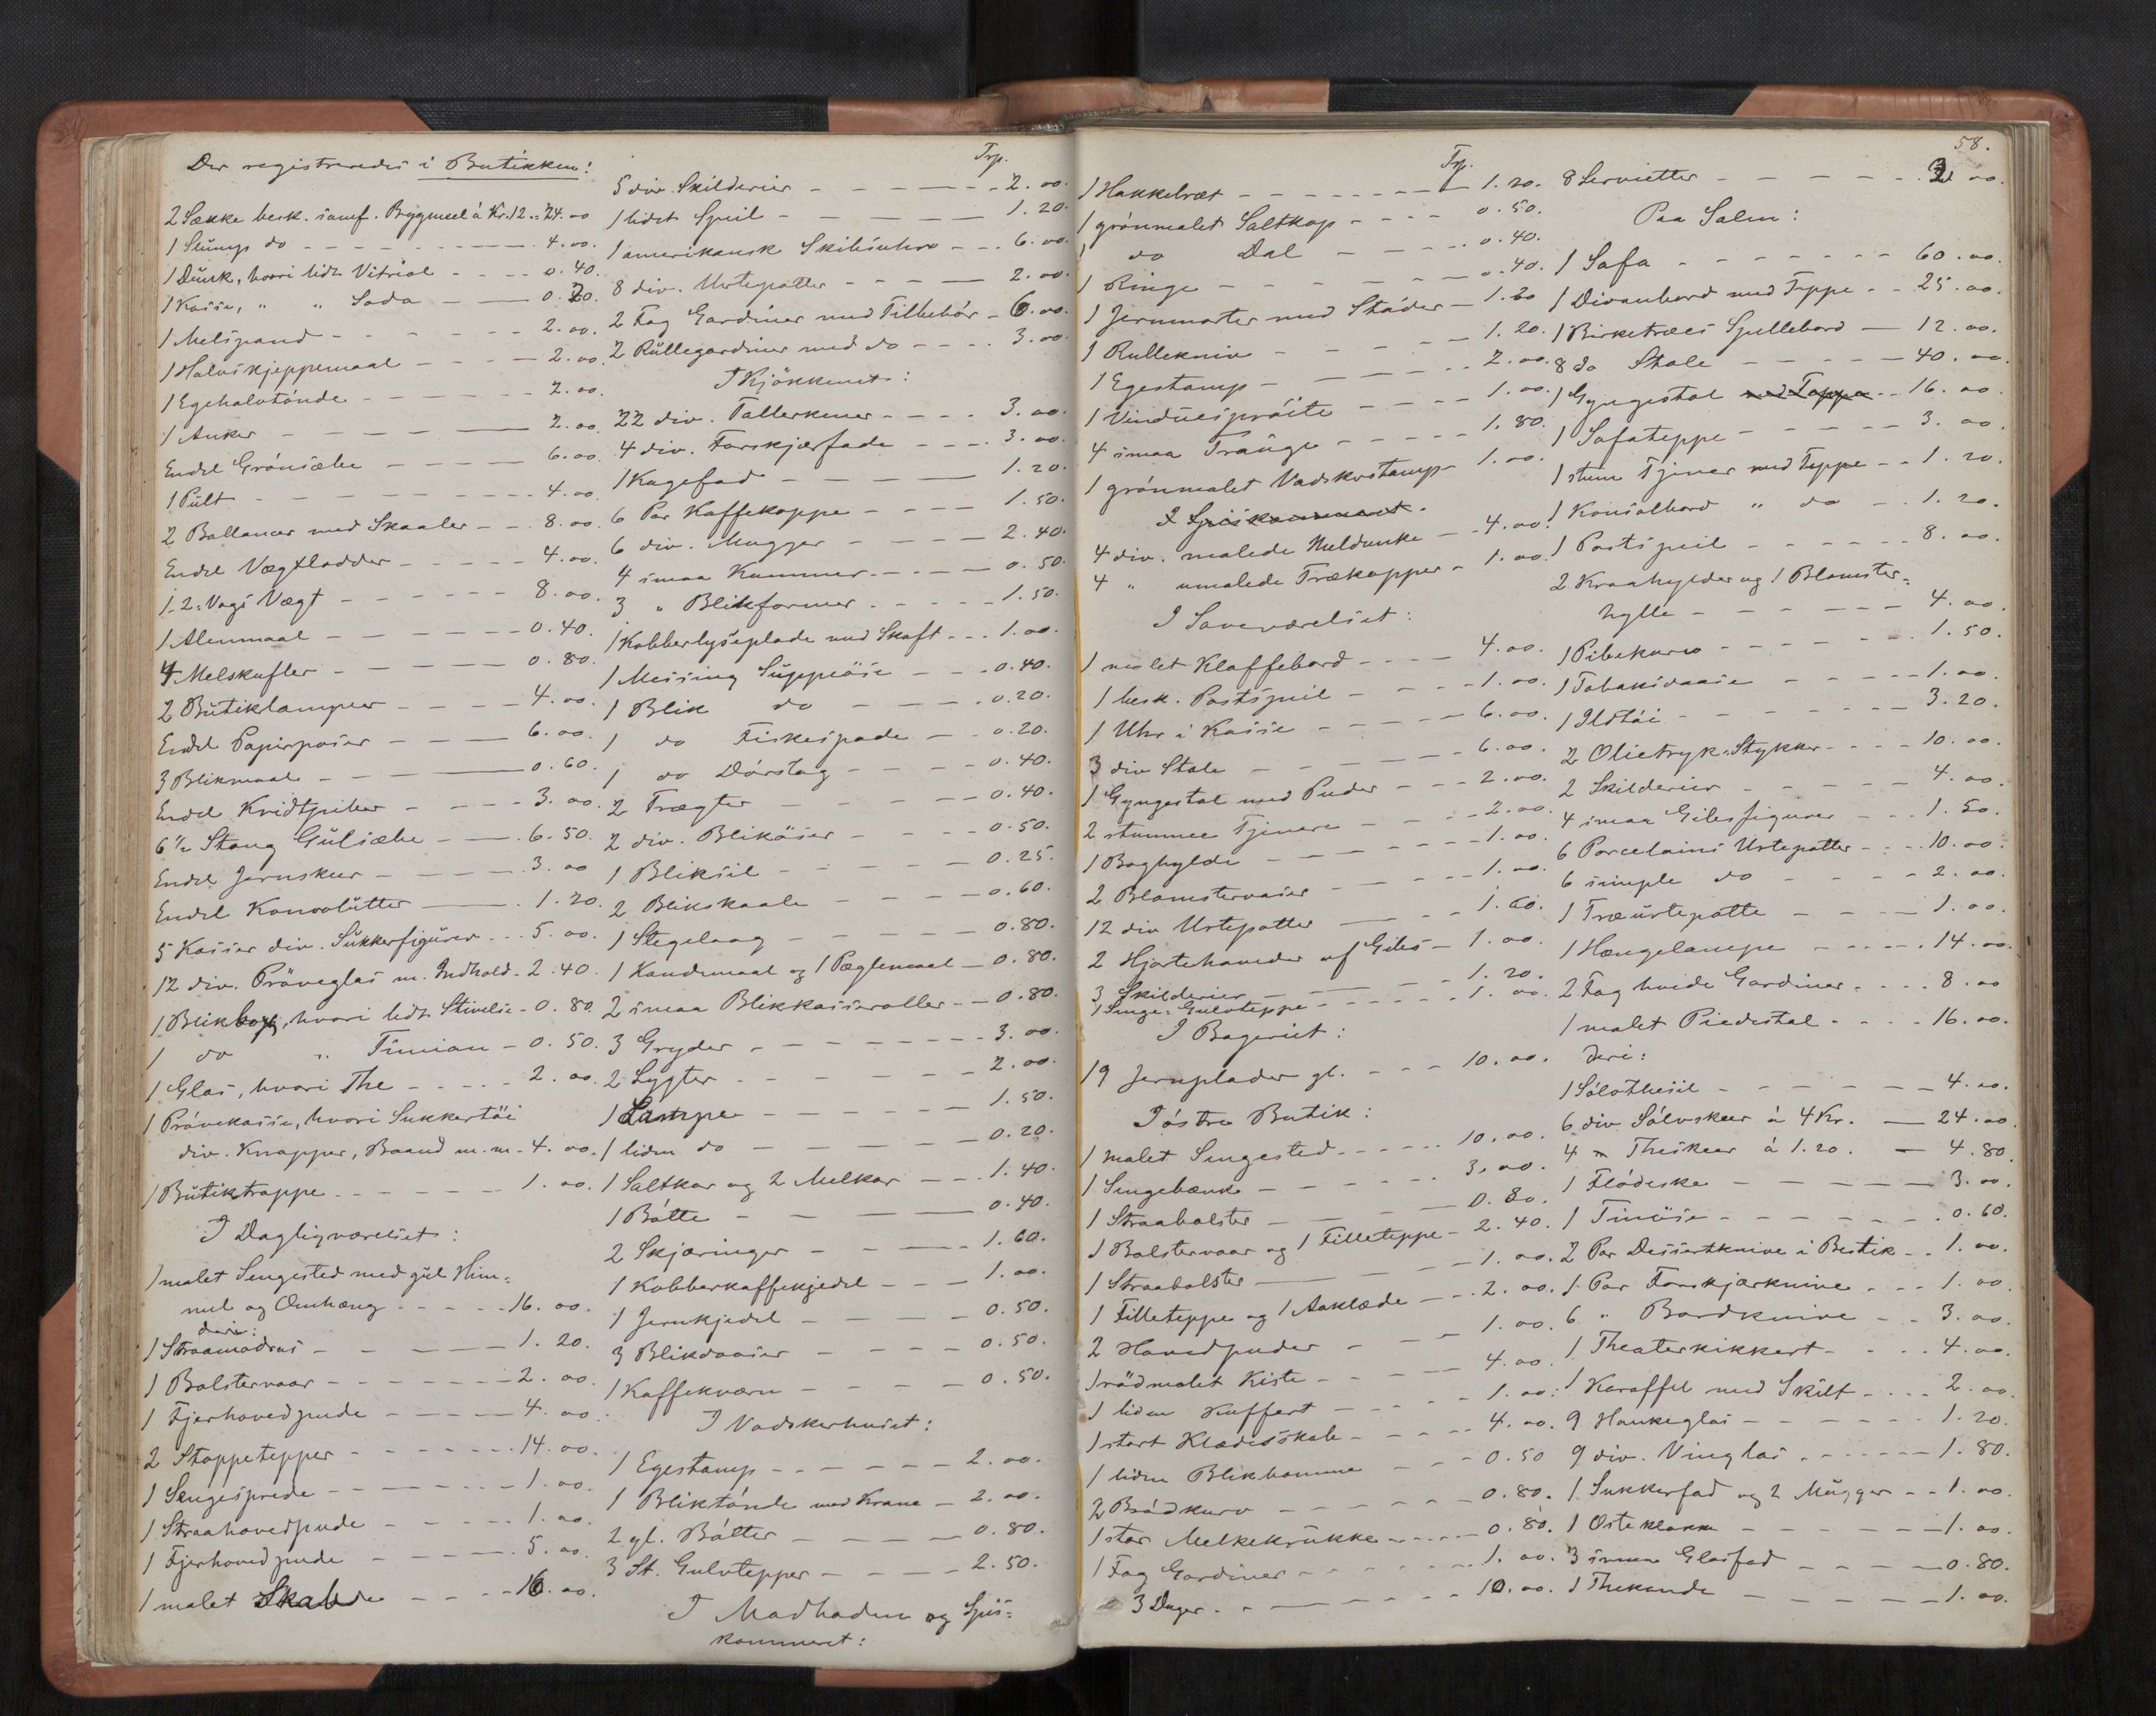 Der registreredes i Butikken:
2 Sække besk. samf. Bygmeel à Kr. 12 = 24.00
1 Slump do - 4.00.
1 Dunk, hvori lidt Vitriol - 0.40.
1 Kasse, " " Soda - 0.20.
1 Melspand - 2.00.
1 Halvskjeppemaal - 2.00.
1 Egehalvtönde - 2.00.
1 Anker - 2.00.
Endel Grönsæbe - 6.00.
1 Pult - 4.00.
2 Ballancer med Skaaler - 8.00.
Endel Vægtlodder - 4.00.
1 2-Vogs Vægt - 8.00.
1 Alenmaal - 0.40.
4 Melskufler - 0.80.
2 Butiklamper - 4.00.
Endel Papirposer - 6.00.
3 Blikmaal - 0.60.
Endel Kridtpiber - 3.00.
6 1/2 Stang Gulsæbe - 6.50.
Endel Jernskeer - 3.00
Endel Konvolutter - 1.20.
5 Kasser div. Sukkerfigurer - 5.00.
12 div. Pröveglas m. Indhold - 2.40.
1 Blikbox, hvori lidt Stivelse - 0.80.
1 do " Timian - 0.50.
1 Glas, hvori The - 2.00.
1 Prövekasse, hvori Sukkertöi
div. Knapper, Baand m.m. - 4.00.
1 Butiktrappe - 1.00.
I Dagligværelset:
1 malet Sengested med gul Him=
mel og Omhæng - 16.00.
deri:
1 Straamadras - 1.20.
1 Bolstervaar - 2.00.
1 Fjerhovedpude - 4.00.
2 Stoppetepper - 14.00.
1 Sengesprede - 1.00.
1 Straahovedpude - 1.00.
1 Fjerhovedpude - 5.00.
1 malet Skab - 16.00.
Trp.
5 div. Skilderier - 2.00.
1 lidet Speil - 1.20.
1 amerikansk Skibsuhr - 6.00.
8 div. Urtepotter - 2.00.
2 Fag Gardiner med Tilbehör - 6.00.
2 Rullegardiner med do - 3.00.
I Kjökkenet:
22 div. Tallerkener - 3.00.
4 div. Forskjærfade - 3.00.
1 Kagefad - 1.20.
6 Par Kaffekoppe - 1.50.
6 div. Mugger - 2.40.
4 smaa Kummer - 0.50.
3 " Blikformer - 1.50.
1 Kobberlyseplade med Skaft - 1.00.
1 Messing Suppeöse - 0.40.
1 Blik do - 0.20.
1 do Fiskespade - 0.20.
1 do Dörslag - 0.40.
2 Trægter - 0.40.
2 div. Bliköser - 0.50.
1 Bliksil - 0.25.
2 Blikskaale - 0.60.
1 Stegelaag - 0.80.
1 Kandemaal og 1 Pæglemaal - 0.80.
2 smaa Blikkasseroller - 0.80.
3 Gryder - 3.00.
2 Lygter - 2.00.
1 Lampe - 1.50.
1 liden do - 0.20.
1 Saltkar og 2 Melkar - 1.40.
1 Bötte - 0.40.
2 Skjæringer - 1.60.
1 Kobberkaffekjedel - 1.00.
1 Jernkjedel - 0.50.
3 Blikdaaser - 0.50.
1 Kaffekværn - 0.50.
I Vadskerhuset:
1 Egestamp - 2.00.
1 Bliktönde med Krane - 2.00.
2 gl. Bötter - 0.80.
3 St. Gulvtepper - 2.50.
I Madboden og Spis=
kammeret:
58.
Trp.
1 Hakkebræt - 1.20.
1 grönmalet Saltkop - 0.50.
1 do Dal - 0.40.
1 Ringe - 0.40.
1 Jernmorter med Stöder - 1.20
1 Rullekniv - 1.20.
1 Egestamp - 2.00.
1 Vinduesspröite - 1.00.
4 smaa Trauge - 1.80.
1 grönmalet Vadskestamp - 1.00.
I Spiskammeret.
4 div. malede Meldunke - 4.00.
4 " umalede Trækopper - 1.00.
I Soveværelset:
1 malet Klaffebord - 4.00.
1 besk. Postspeil - 1.00.
1 Uhr i Kasse - 6.00.
3 div Stole - 6.00.
1 Gyngestol med Puder - 2.00.
2 stumme Tjenere - 2.00.
1 Boghylde - 1.00.
2 Blomstervaser - 1.00.
12 div Urtepotter - 1.60.
2 Hjortehoveder af Gibs - 1.00.
3 Skilderier - 1.20.
1 Senge-Gulvteppe - 1.00.
I Bageriet:
19 Jernplader gl. - 10.00.
I östre Butik:
1 malet Sengested - 10.00.
1 Sengebænk - 3.00.
1 Straabolster - 0.80.
1 Bolstervaar og 1 Filleteppe - 2.40.
1 Straabolster - 1.00.
1 Filleteppe og 1 Aaklæde - 2.00.
2 Hovedpuder - 1.00.
1 rödmalet Kiste - 4.00.
1 liden Kuffert - 1.00.
1 stort Klædesskab - 4.00.
1 liden Blikkomme - 0.50
2 Brödkurv - 0.80.
1 stor Melkekrukke - 0.80.
1 Fag Gardiner - 1.00.
3 Duger - 10.00.
8 Servietter - 3.00.
Paa Salen:
1 Sofa - 60.00.
1 Divanbord med Teppe - 25.00.
1 Birketræes Spillebord - 12.00.
8 do Stole - 40.00.
1 Gyngestol med Teppe - 16.00
1 Sofateppe - 3.00.
1 stum Tjener med Teppe - 1.20.
1 Konsolbord " do - 1.20.
1 Postspeil - 8.00.
2 Kraahylder og 1 Blomster=
hylle - 4.00.
1 Pibekurv - 1.50.
1 Tobaksdaase - 1.00.
1 Ildtöi - 3.20.
2 Olietryk-Stykker - 10.00.
2 Skilderier - 4.00.
4 smaa Gibsfigurer - 1.50.
6 Porcelains Urtepotter - 10.00.
6 simple do - 2.00.
1 Træurtepotte - 1.00.
1 Hængelampe - 14.00.
2 Fag hvide Gardiner - 8.00
1 malet Piedestal - 16.00.
deri:
1 Sölvthesil - 4.00.
6 div Sölvskeer à 4 Kr. - 24.00.
4 " Theskeer à 1.20. - 4.80.
1 Flödeske - 3.00.
1 Tinöse - 0.60.
2 Par Dessertknive i Bestik - 1.00.
1 Par Forskjærknive - 1.00
6 " Bordknive - 3.00.
1 Theaterkikkert - 4.00.
1 Karaffel med Skilt - 2.00.
9 Hankeglas - 1.20.
9 div. Vinglas - 1.80.
1 Sukkerfad og 2 Mugger - 1.00.
1 Osteklokke - 1.00.
3 smaa Glasfad - 0.80.
1 Thekande - 1.00.